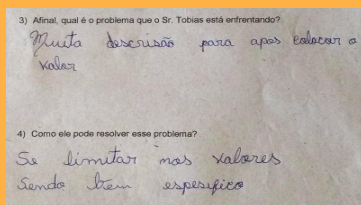 3) Afinal, qual é o problema que o Sr. Tobias está enfrentando?
Muita descrisão para apos colocar o
valor
4) Como ele pode resolver esse problema?
Se limitar nos valores
Sendo bem espesifico